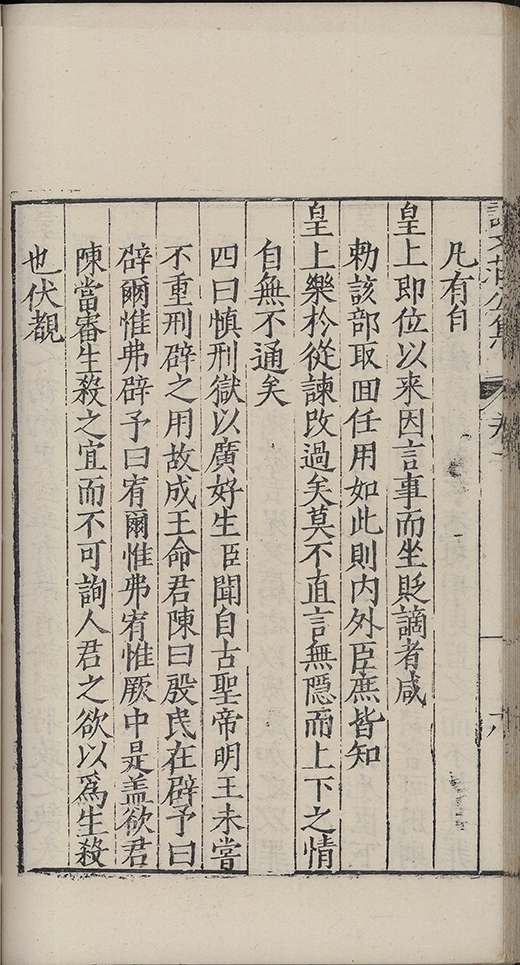 凡有自
皇上即位以来因言事而坐貶謫者咸
勑該部取回任用如此則内外臣庶皆知
皇上樂於從諫改過矣莫不直言無隠而上下之情
自無不通矣
四曰慎刑獄以廣好生臣聞自古聖帝明王未嘗
不重刑辟之用故成王命君陳曰殷民在辟予曰
辟爾惟弗辟予曰宥爾惟弗宥惟厥中是盖欲君
陳當審生殺之宜而不可詢人君之欲以為生殺
也伏覩